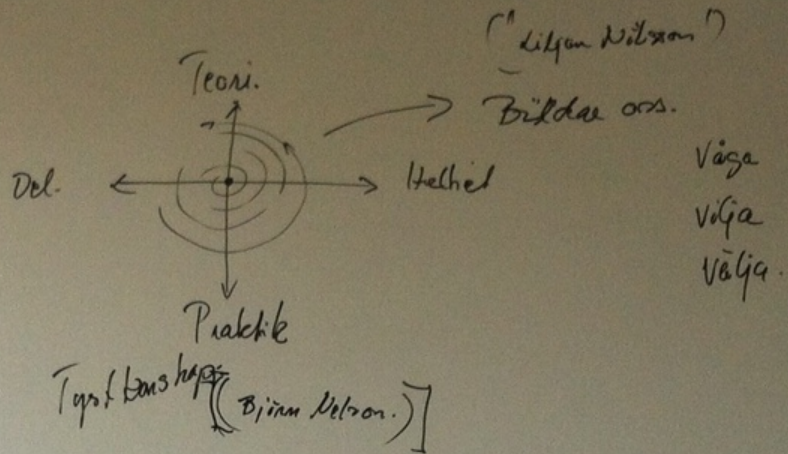 ("Liljan Nilsson")
Teori.
Bildar oss.
Del.
Helhet
Våga
vilja
välja.
Praktik
Tyst kunskap
[(Björn Nelson.)]